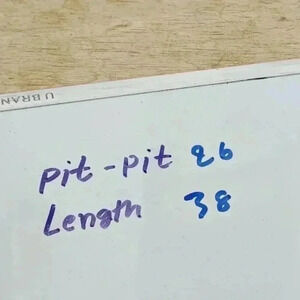 U BRAN
pit-pit 26
Length 38